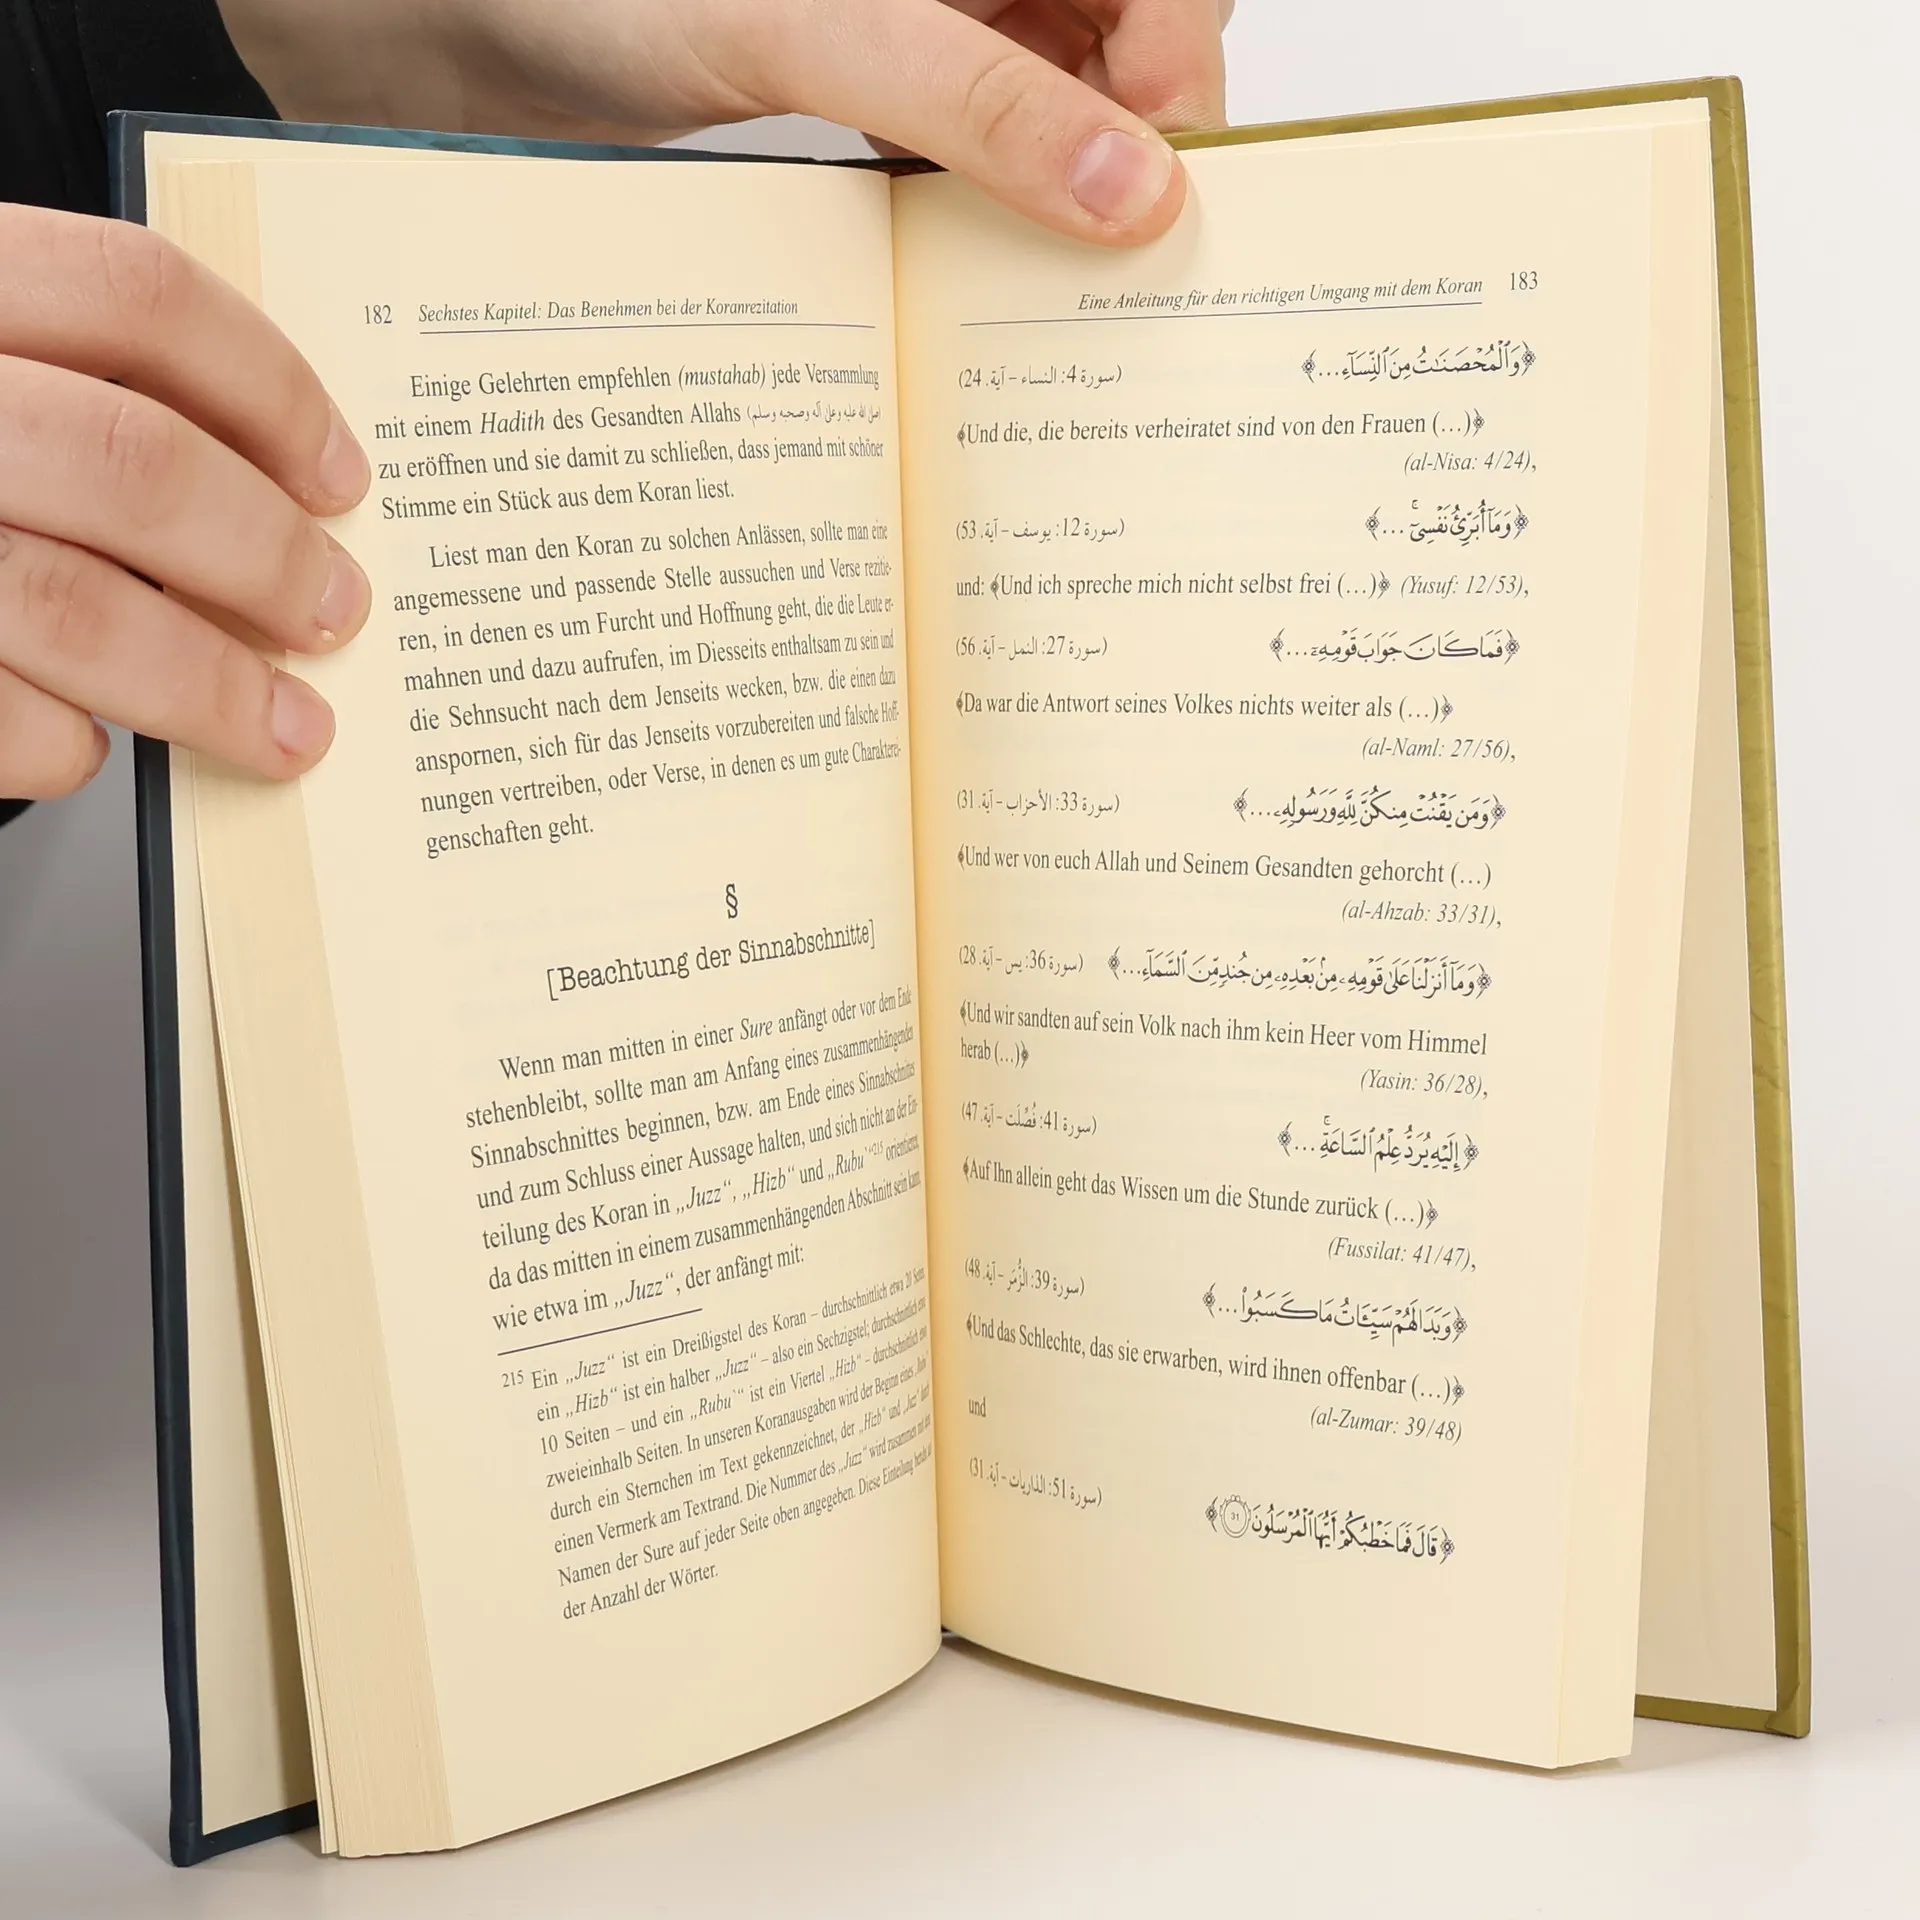 182 Sechstes Kapitel: Das Benehmen bei der Koranrezitation
Einige Gelehrten empfehlen (mustahab) jede Versammlung
mit einem Hadith des Gesandten Allahs (صلى الله عليه وعلى آله وصحبه وسلم)
zu eröffnen und sie damit zu schließen, dass jemand mit schöner
Stimme ein Stück aus dem Koran liest.
Liest man den Koran zu solchen Anlässen, sollte man eine
angemessene und passende Stelle aussuchen und Verse rezitie-
ren, in denen es um Furcht und Hoffnung geht, die die Leute er-
mahnen und dazu aufrufen, im Diesseits enthaltsam zu sein und
die Sehnsucht nach dem Jenseits wecken, bzw. die einen dazu
anspornen, sich für das Jenseits vorzubereiten und falsche Hoff-
nungen vertreiben, oder Verse, in denen es um gute Charakterei-
genschaften geht.
§
[Beachtung der Sinnabschnitte]
Wenn man mitten in einer Sure anfängt oder vor dem Ende
stehenbleibt, sollte man am Anfang eines zusammenhängenden
Sinnabschnittes beginnen, bzw. am Ende eines Sinnabschnittes
und zum Schluss einer Aussage halten, und sich nicht an der Ein-
teilung des Koran in „Juzz“, „Hizb“ und „Rubu`“215 orientieren,
da das mitten in einem zusammenhängenden Abschnitt sein kann,
wie etwa im „Juzz“, der anfängt mit:
215 Ein „Juzz“ ist ein Dreißigstel des Koran – durchschnittlich etwa 20 Seiten;
ein „Hizb“ ist ein halber „Juzz“ – also ein Sechzigstel; durchschnittlich etwa
10 Seiten – und ein „Rubu`“ ist ein Viertel „Hizb“ – durchschnittlich etwa
zweieinhalb Seiten. In unseren Koranausgaben wird der Beginn eines „Rubu`“
durch ein Sternchen im Text gekennzeichnet, der „Hizb“ und „Juzz“ durch
einen Vermerk am Textrand. Die Nummer des „Juzz“ wird zusammen mit dem
Namen der Sure auf jeder Seite oben angegeben. Diese Einteilung beruht auf
der Anzahl der Wörter.
Eine Anleitung für den richtigen Umgang mit dem Koran 183
﴿وَٱلْمُحْصَنَـٰتُ مِنَ ٱلنِّسَآءِ...﴾ (سورة 4: النساء – آية. 24)
﴾Und die, die bereits verheiratet sind von den Frauen (…)﴿
(al-Nisa: 4/24),
﴿وَمَآ أُبَرِّئُ نَفْسِىٓ ۚ ...﴾ (سورة 12: يوسف – آية. 53)
und: ﴾Und ich spreche mich nicht selbst frei (…)﴿ (Yusuf: 12/53),
﴿فَمَا كَانَ جَوَابَ قَوْمِهِۦٓ...﴾ (سورة 27: النمل – آية. 56)
﴾Da war die Antwort seines Volkes nichts weiter als (…)﴿
(al-Naml: 27/56),
﴿وَمَن يَقْنُتْ مِنكُنَّ لِلَّهِ وَرَسُولِهِۦ...﴾ (سورة 33: الأحزاب – آية. 31)
﴾Und wer von euch Allah und Seinem Gesandten gehorcht (…)
(al-Ahzab: 33/31),
﴿وَمَآ أَنزَلْنَا عَلَىٰ قَوْمِهِۦ مِنۢ بَعْدِهِۦ مِن جُندٍ مِّنَ ٱلسَّمَآءِ...﴾ (سورة 36: يس – آية. 28)
﴾Und wir sandten auf sein Volk nach ihm kein Heer vom Himmel
herab (…)﴿
(Yasin: 36/28),
﴿إِلَيْهِ يُرَدُّ عِلْمُ ٱلسَّاعَةِ ۚ ...﴾ (سورة 41: فُصِّلَت – آية. 47)
﴾Auf Ihn allein geht das Wissen um die Stunde zurück (…)﴿
(Fussilat: 41/47),
﴿وَبَدَا لَهُمْ سَيِّـَٔاتُ مَا كَسَبُوا۟...﴾ (سورة 39: الزُّمَر – آية. 48)
﴾Und das Schlechte, das sie erwarben, wird ihnen offenbar (…)﴿
(al-Zumar: 39/48)
und
﴿قَالَ فَمَا خَطْبُكُمْ أَيُّهَا ٱلْمُرْسَلُونَ 31﴾ (سورة 51: الذاريات – آية. 31)